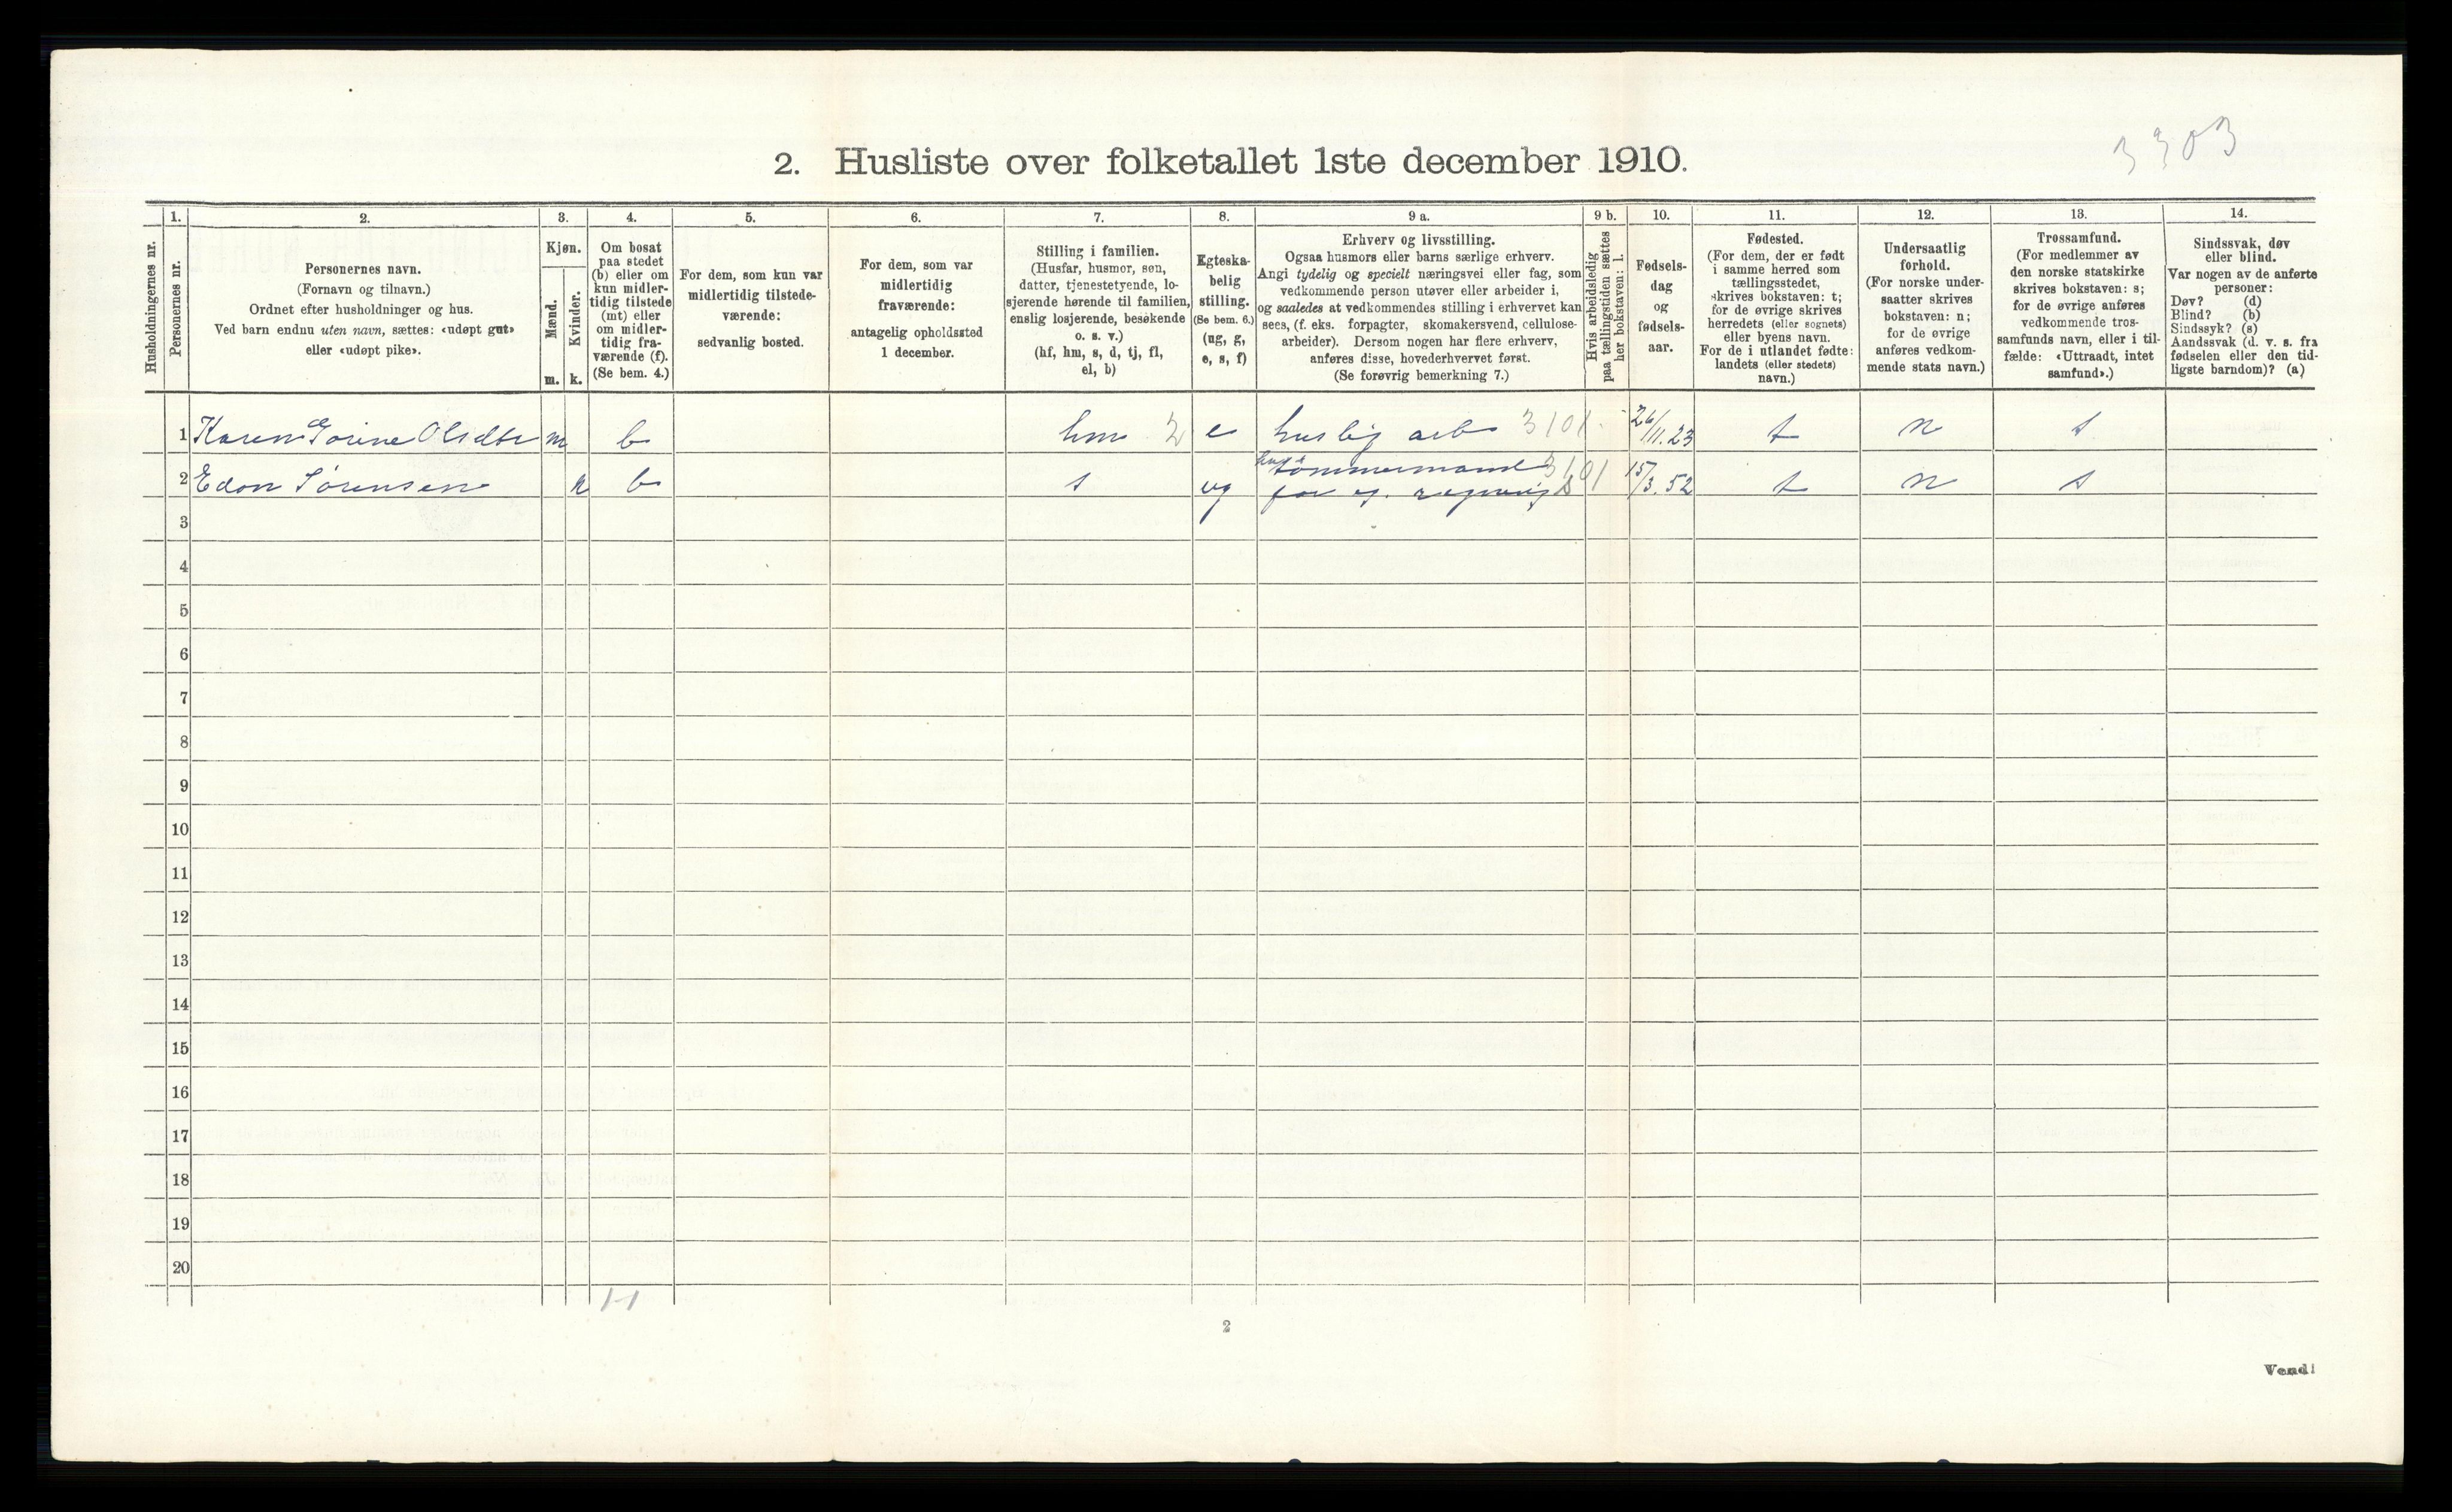 3303
2. Husliste over folketallet 1ste december 1910.
Husholdningernes nr.
1.
Personernes nr.
2.
Personernes navn.
(Fornavn og tilnavn.)
Ordnet efter husholdninger og hus.
Ved barn endnu uten navn, sættes: «udøpt gut»
eller «udøpt pike».
3.
Kjøn.
Mænd.
Kvinder.
m. k.
4.
Om bosat
paa stedet
(b) eller om
kun midler-
tidig tilstede
(mt) eller
om midler-
tidig fra-
værende (f).
(Se bem. 4.)
5.
For dem, som kun var
midlertidig tilstede-
værende:
sedvanlig bosted.
6.
For dem, som var
midlertidig
fraværende:
antagelig opholdssted
1 december.
7.
Stilling i familien.
(Husfar, husmor, søn,
datter, tjenestetyende, lo-
sjerende hørende til familien,
enslig losjerende, besøkende
o. s. v.)
(hf, hm, s, d, tj, fl,
el, b)
8.
Egteska-
belig
stilling.
(Se bem. 6.)
(ug, g,
e, s, f)
9 a.
Erhverv og livsstilling.
Ogsaa husmors eller barns særlige erhverv.
Angi tydelig og specielt næringsvei eller fag, som
vedkommende person utøver eller arbeider i,
og saaledes at vedkommendes stilling i erhvervet kan
sees, (f. eks. forpagter, skomakersvend, cellulose-
arbeider). Dersom nogen har flere erhverv,
anføres disse, hovederhvervet først.
(Se forøvrig bemerkning 7.)
9 b.
Hvis arbeidsledig
paa tællingstiden sættes
her bokstaven: l.
10.
Fødsels-
dag
og
fødsels-
aar.
11.
Fødested.
(For dem, der er født
i samme herred som
tællingsstedet,
skrives bokstaven: t;
for de øvrige skrives
herredets (eller sognets)
eller byens navn.
For de i utlandet fødte:
landets (eller stedets)
navn.)
12.
Undersaatlig
forhold.
(For norske under-
saatter skrives
bokstaven: n;
for de øvrige
anføres vedkom-
mende stats navn.)
13.
Trossamfund.
(For medlemmer av
den norske statskirke
skrives bokstaven: s;
for de øvrige anføres
vedkommende tros-
samfunds navn, eller i til-
fælde: «Uttraadt, intet
samfund».)
14.
Sindssvak, døv
eller blind.
Var nogen av de anførte
personer:
Døv? (d)
Blind? (b)
Sindssyk? (s)
Aandssvak (d. v. s. fra
fødselen eller den tid-
ligste barndom)? (a)
1 Karen Gorine Olsdtr m b hm 2 e huslig arb 3101 26/11.23 t n s
2 Edon Sørensen k b s ug tömmermand 3101 15/3.52 t n s
for eg. regning
3
4
5
6
7
8
9
10
11
12
13
14
15
16
17
18
19
20
1-1
2
Vend!